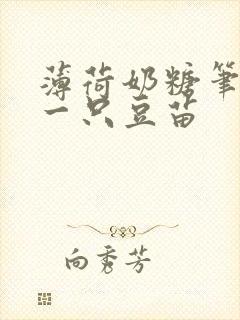 薄荷奶糖筆
一只豆苗
向秀芳